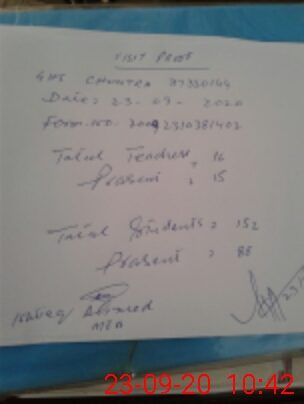 VISIT PROOF
GHS CHUNTRA 37330144
Date: 23-09-2020
Total Teachers = 16
Present = 15
Total Students = 152
Present = 88
Ahmed
MEA
23-09-20 10:42